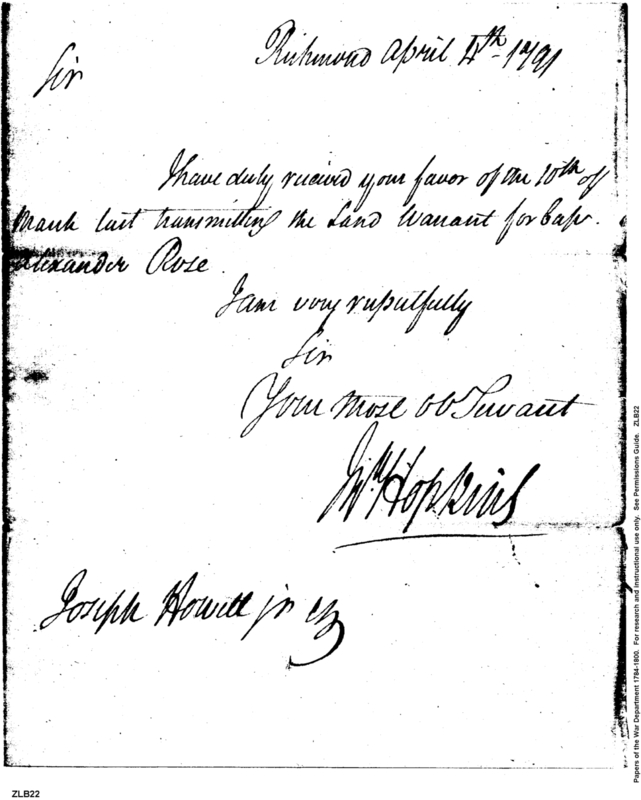 Richmond April 4th 1791
Sir
I have duly receivd your favor of the 10th of
March last transmitting the Land Warrant for Cap.
Alexander Rose.
I am very respectfully
Sir
Your most ob Servant
Jno Hopkins
Joseph Howell jr
Papers of the War Department 1784-1800. For research and instructional use only. See Permissions Guide. ZLB22
ZLB22